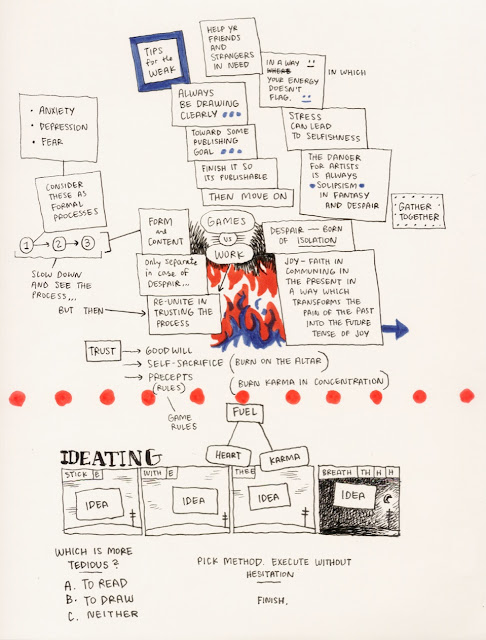 TIPS
for the
WEAK
HELP YR
FRIENDS
AND
STRANGERS
IN NEED
IN A WAY
WHERE
YOUR ENERGY
DOESN'T
FLAG.
IN WHICH
ALWAYS
BE DRAWING
CLEARLY
TOWARD SOME
PUBLISHING
GOAL
FINISH IT SO
ITS PUBLISHABLE
THEN MOVE ON
STRESS
CAN LEAD
TO SELFISHNESS
THE DANGER
FOR ARTISTS
IS ALWAYS
SOLIPSISM
IN FANTASY
AND DESPAIR
GATHER
TOGETHER
• ANXIETY
• DEPRESSION
• FEAR
CONSIDER
THESE AS
FORMAL
PROCESSES
1 2 3
SLOW DOWN
AND SEE THE
PROCESS...
BUT THEN
FORM
and
CONTENT
Only Separate
in case of
DESPAIR...
RE-UNITE IN
TRUSTING THE
PROCESS
GAMES
VS
WORK
DESPAIR — BORN
OF ISOLATION
JOY - FAITH IN
COMMUNING IN
THE PRESENT IN
A WAY WHICH
TRANSFORMS THE
PAIN OF THE PAST
INTO THE FUTURE
TENSE OF JOY
TRUST
GOODWILL
SELF-SACRIFICE (BURN ON THE ALTAR)
PRECEPTS
(RULES)
(BURN KARMA IN CONCENTRATION)
GAME
RULES
FUEL
HEART
KARMA
IDEATING
STICK E
WITH E
THEE
BREATH TH H H
IDEA
IDEA
IDEA
IDEA
WHICH IS MORE
TEDIOUS?
A. TO READ
B. TO DRAW
C. NEITHER
PICK METHOD. EXECUTE WITHOUT
HESITATION
FINISH.